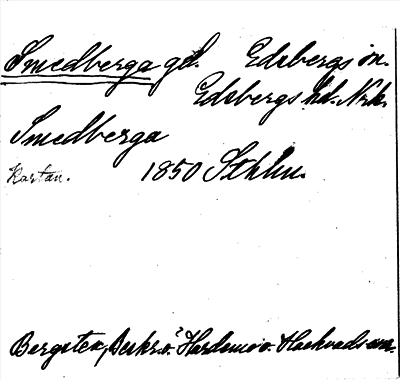 Smedberga gd. Edsbergs sn.
Edsbergs hd. Nrk.
Smedberga
Kartan. 1850 Sthlm.
Bergsten, Beskr. ö. Hardemo o. Hackvads snr.